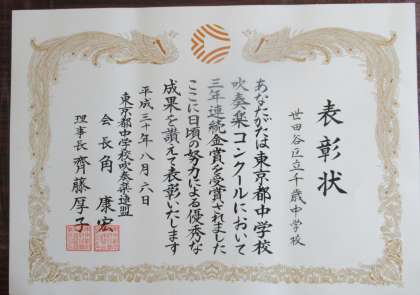 表彰状
世田谷区立千歳中学校
あなたがたは東京都中学校
吹奏楽コンクールにおいて
三年連続金賞を受賞されました
ここに日頃の努力による優秀な
成果を讃えて表彰いたします
平成三十年八月六日
東京都中学校吹奏楽連盟
会長角康宏
理事長齊藤厚子